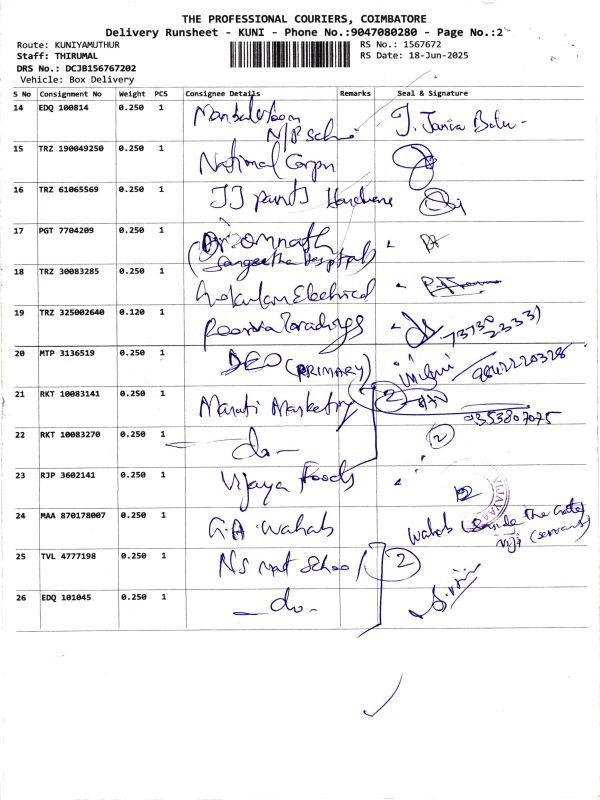 THE PROFESSIONAL COURIERS, COIMBATORE
Delivery Runsheet - KUNI - Phone No.:9047080280 - Page No.:2
Route: KUNIYAMUTHUR RS No.: 1567672
Staff: THIRUMAL RS Date: 18-Jun-2025
DRS No.: DCJB156767202
Vehicle: Box Delivery
S No Consignment No Weight PCS Consignee Details Remarks Seal & Signature
14 EDQ 100814 0.250 1
15 TRZ 190049250 0.250 1 National Corpn
16 TRZ 61065569 0.250 1 JJ paints Hardware
17 PGT 7704209 0.250 1 Somnath
(Sangeetha Hospital)
18 TRZ 30083285 0.250 1 Gokulam Electrical
19 TRZ 325002640 0.120 1 Poorva
20 MTP 3136519 0.250 1 DEO (PRIMARY) 9842220328
21 RKT 10083141 0.250 1 Maruti Marketing 2
9353807075
22 RKT 10083270 0.250 1 -do- 2
23 RJP 3602141 0.250 1 Vijaya Foods
24 MAA 870178007 0.250 1 G.A. Wahab Wahab
(servant)
25 TVL 4777198 0.250 1 NS mat School 2
26 EDQ 101045 0.250 1 -do-